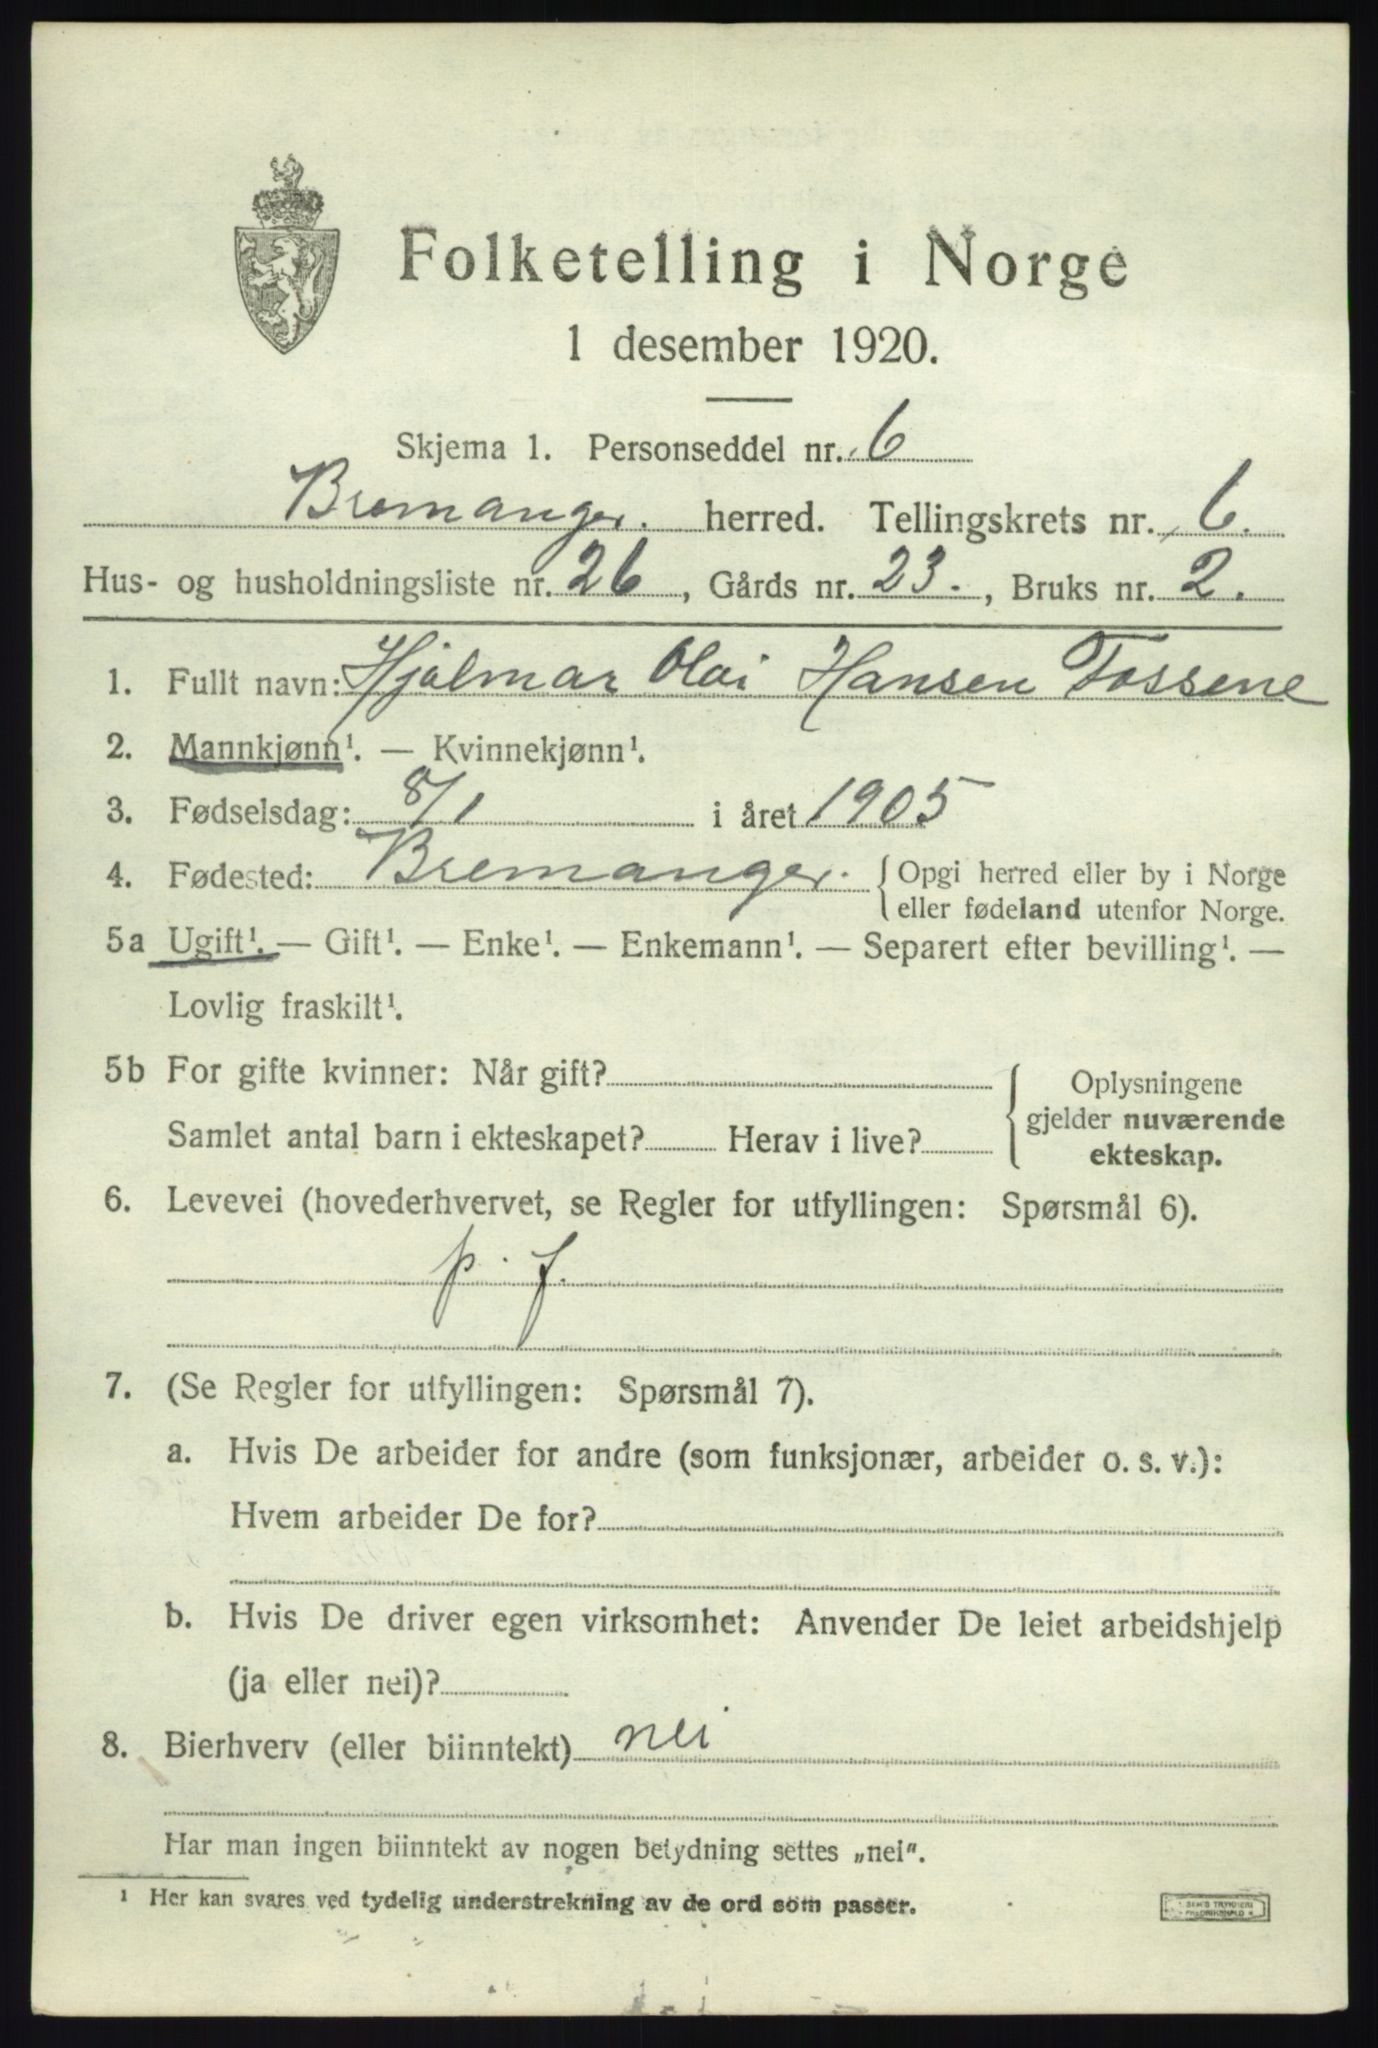 Folketelling i Norge
1 desember 1920.
Skjema 1. Personseddel nr. 6
Bremanger. herred. Tellingskrets nr. 6.
Hus- og husholdningsliste nr. 26, Gårds nr. 23., Bruks nr. 2.
1. Fullt navn: Hjalmar Olai Hansen Fossene
2. Mannkjønn¹. — Kvinnekjønn¹.
3. Fødselsdag: 8/1 i året 1905
4. Fødested: Bremanger. { Opgi herred eller by i Norge
eller fødeland utenfor Norge.
5a Ugift¹. — Gift¹. — Enke¹. — Enkemann¹. — Separert efter bevilling¹. —
Lovlig fraskilt¹.
5b For gifte kvinner: Når gift?
Samlet antal barn i ekteskapet? Herav i live?
{ Oplysningene
gjelder nuværende
ekteskap.
6. Levevei (hovederhvervet, se Regler for utfyllingen: Spørsmål 6).
p. f.
7. (Se Regler for utfyllingen: Spørsmål 7).
a. Hvis De arbeider for andre (som funksjonær, arbeider o. s. v.):
Hvem arbeider De for?
b. Hvis De driver egen virksomhet: Anvender De leiet arbeidshjelp
(ja eller nei)?
8. Bierhverv (eller biinntekt) nei
Har man ingen biinntekt av nogen betydning settes „nei“.
¹ Her kan svares ved tydelig understrekning av de ord som passer.